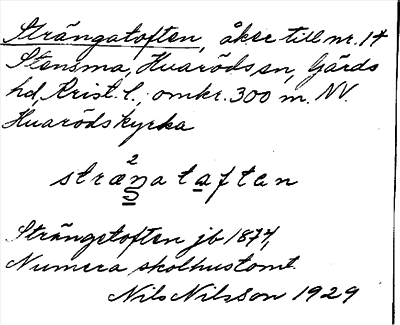 Strängatoften, åker till nr. 14
Stensma, Huaröds sn, Gärds
hd, Krist. l., omkr. 300 m. NV.
Huaröds kyrka
stræ²ŋatɑftan
Strängetoften jb 1874,
Numera skolhustomt.
Nils Nilsson 1929